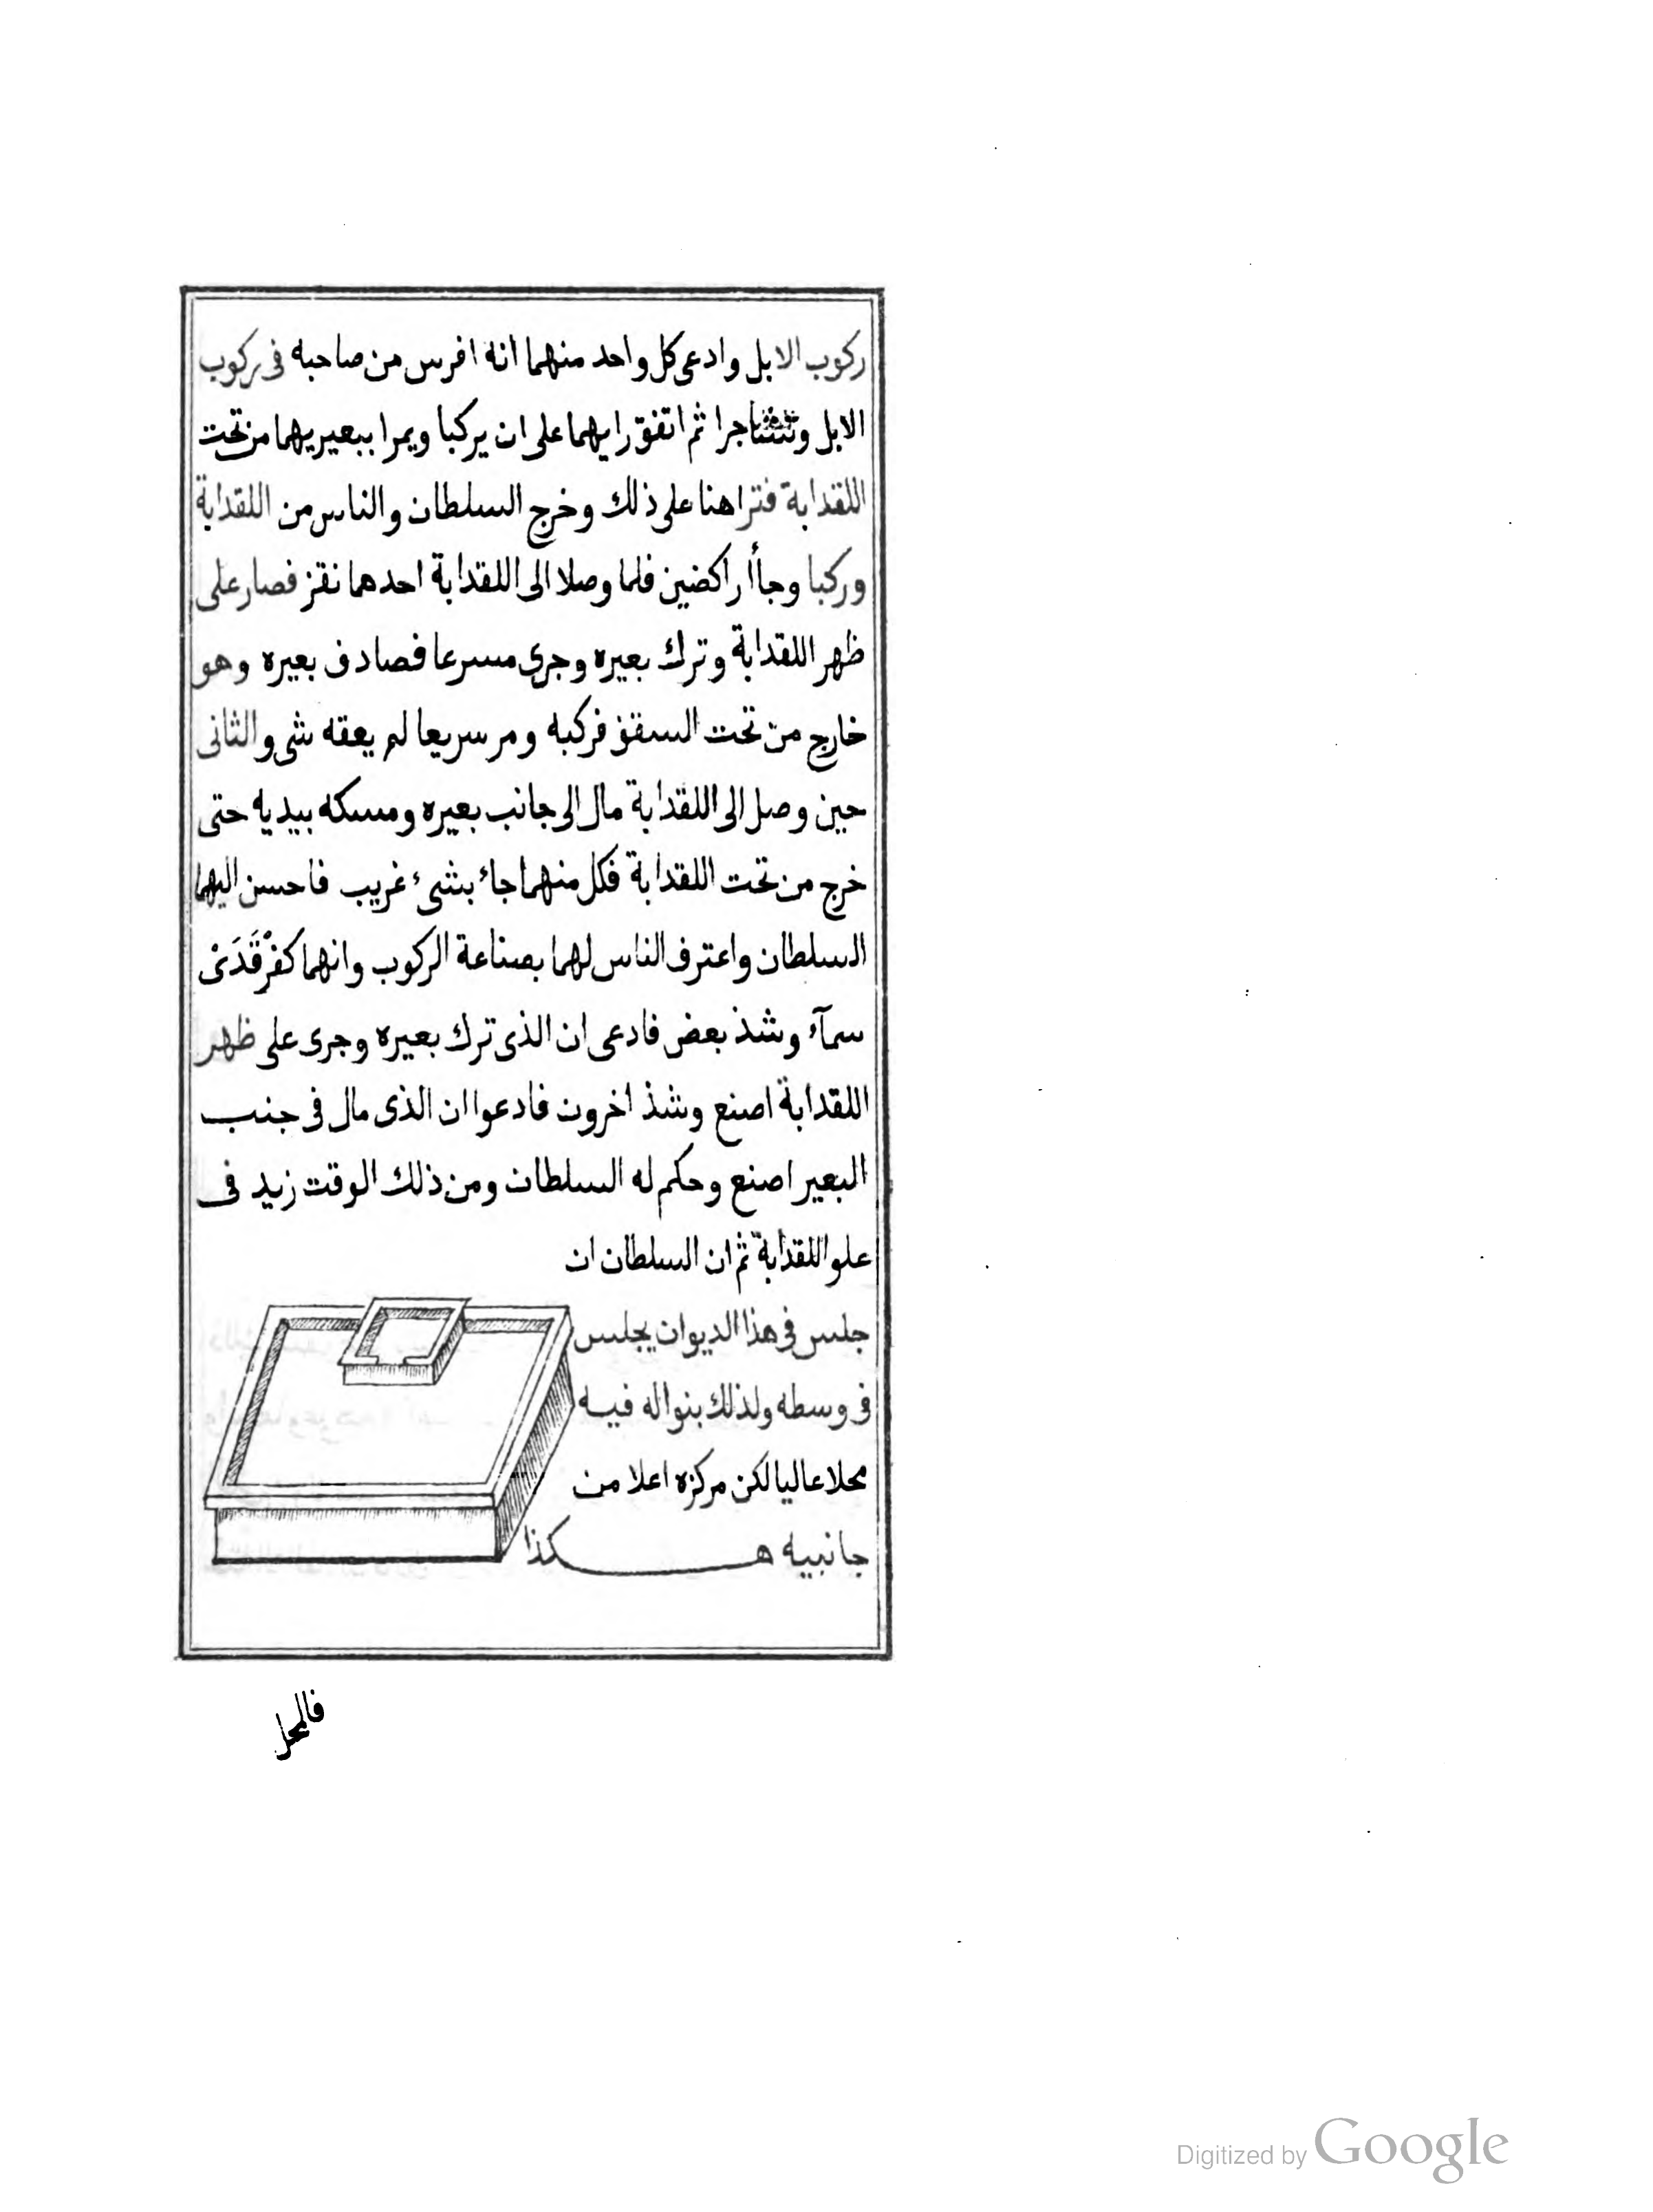 ركوب الابل وادعى كل واحد منهما انه افرس من صاحبه فى ركوب
الابل وتشاجرا ثم اتفق رايهما على ان يركبا ويمرا ببعيريهما من تحت
اللقدابة فتراهنا على ذلك وخرج السلطان والناس من اللقدابة
وركبا وجاأ راكضين فلما وصلا الى اللقدابة احدهما نقز فصار على
ظهر اللقدابة وترك بعيره وجرى مسرعا فصادف بعيره وهو
خارج من تحت السقف فركبه ومر سريعا لم يعقه شى والثانى
حين وصل الى اللقدابة مال الى جانب بعيره ومسكه بيديه حتى
خرج من تحت اللقدابة فكل منهما جاء بشىء غريب فاحسن اليهما
السلطان واعترف الناس لهما بصناعة الركوب وانهما كفرْقَدَىْ
سمآء وشذ بعض فادعى ان الذى ترك بعيره وجرى على ظهر
اللقدابة اصنع وشذ اخرون فادعوا ان الذى مال فى جنب
البعير اصنع وحكم له السلطان ومن ذلك الوقت زيد فى
علو اللقدابة ثم ان السلطان ان
جلس فى هذا الديوان يجلس
فى وسطه ولذلك بنوا له فيه
محلا عاليا لكن مركزه اعلا من
جانبيه هكذا
فالمحل
Digitized by Google